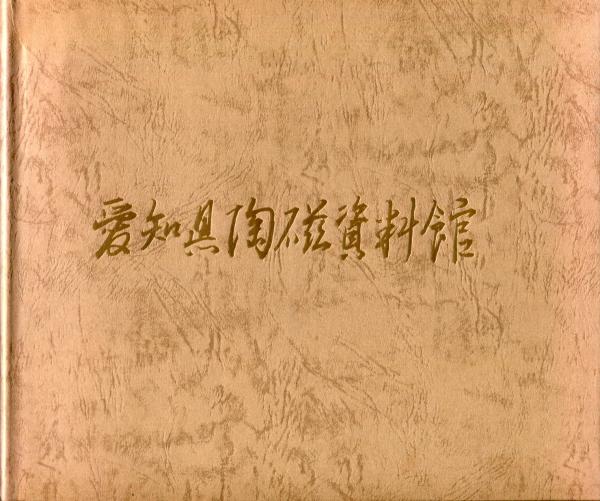 愛知県陶磁資料館